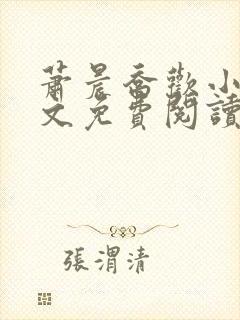 蕭晨喬歡小
文免費閱讀
張渭清